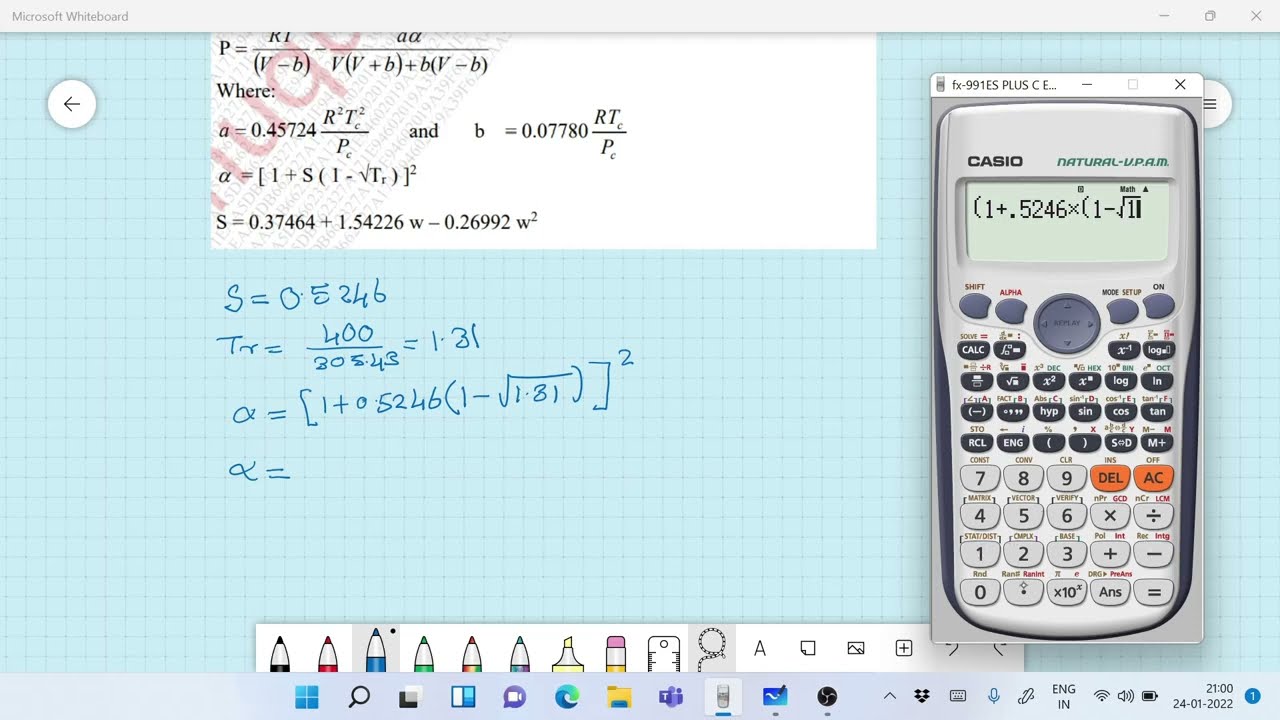 Microsoft Whiteboard
P = RT/(V – b) – aα/V(V + b)+b(V – b)
Where:
a = 0.45724 R²T_c²/P_c and b = 0.07780 RT_c/P_c
α = [ 1 + S ( 1 - √T_r ) ]²
S = 0.37464 + 1.54226 w – 0.26992 w²
S = 0.5246
Tr = 400/305.43 = 1.31
α = [1+0.5246(1-√1.31)]²
α =
fx-991ES PLUS C E...
CASIO NATURAL-V.P.A.M.
D Math ▲
(1+.5246×(1-√1
SHIFT ALPHA MODE SETUP ON
REPLAY
SOLVE = x!
CALC x⁻¹ log
x³ DEC HEX 10^x BIN e^x OCT
√ x² x^■ log ln
FACT [B] Abs [C] sin⁻¹ [D] cos⁻¹ [E] tan⁻¹ [F]
(−) °,,, hyp sin cos tan
STO ← i % , X Y M– M
RCL ENG ( ) S⇔D M+
CONST CONV CLR INS OFF
7 8 9 DEL AC
[MATRIX] [VECTOR] [VERIFY] nPr GCD nCr LCM
4 5 6 × ÷
[STAT/DIST] [CMPLX] [BASE] Pol Int Rec Intg
1 2 3 + −
Rnd Ran# RanInt π e DRG▶ PreAns
0 . ×10^x Ans =
A
ENG
IN
21:00
24-01-2022
1